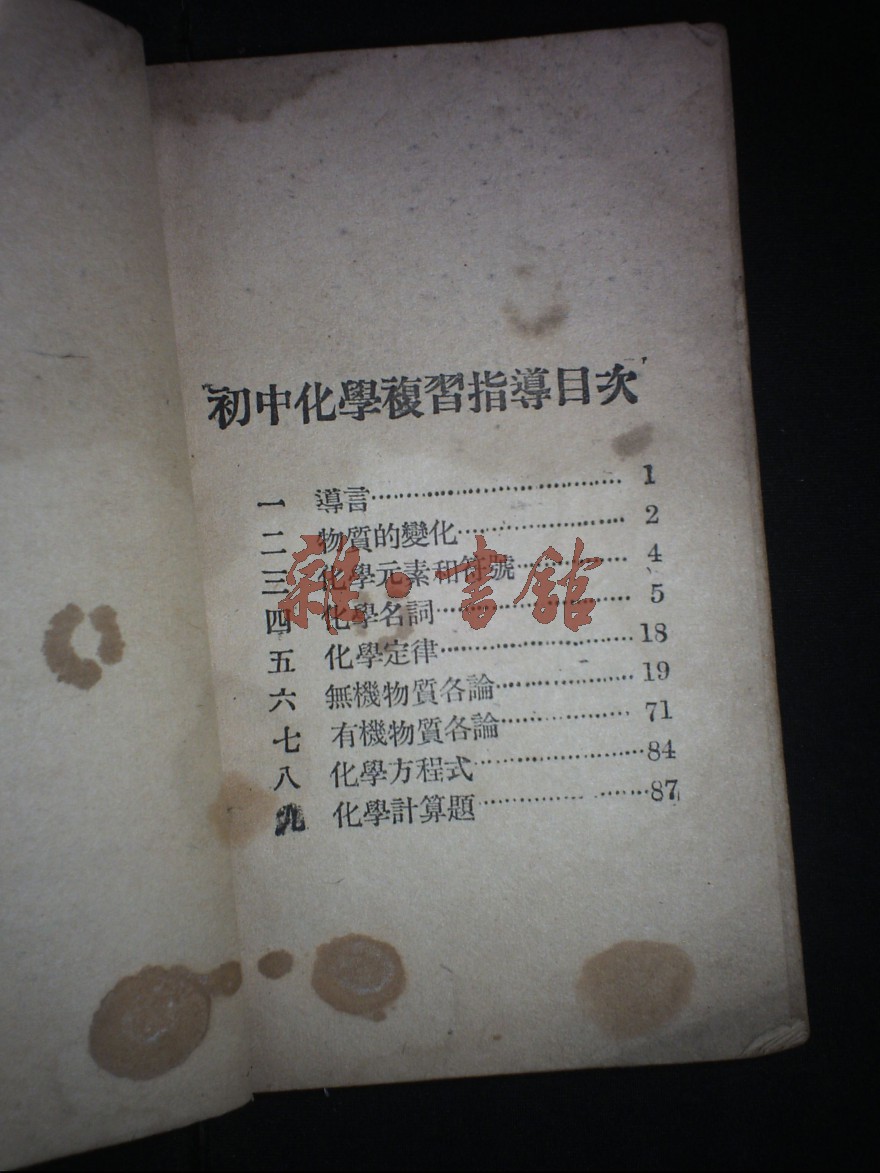 初中化學複習指導目次
一 導言 1
二 物質的變化 2
三 化學元素和符號 4
四 化學名詞 5
五 化學定律 18
六 無機物質各論 19
七 有機物質各論 71
八 化學方程式 84
九 化學計算題 87
雜·書館